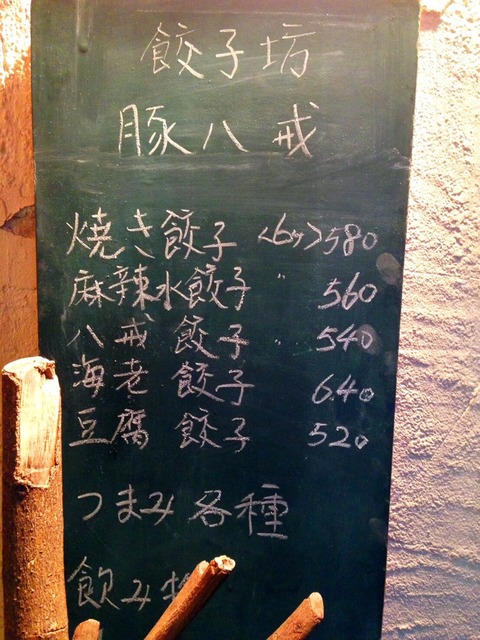 餃子坊
豚八戒
焼き餃子 <6ヶ> 580
麻辣水餃子 〃 560
八戒 餃子 〃 540
海老 餃子 640
豆腐 餃子 520
つまみ各種
飲み